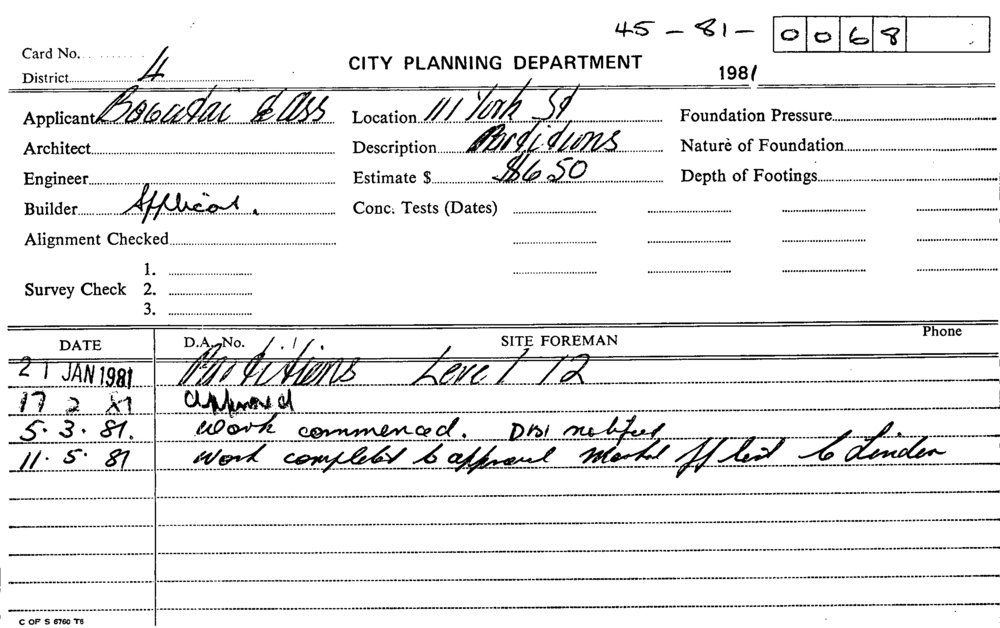 45-81-0068
Card No.
District 4
CITY PLANNING DEPARTMENT
1981
Applicant & Ass
Location 111 York St
Foundation Pressure
Architect
Description Partitions
Nature of Foundation
Engineer
Estimate $ $650
Depth of Footings
Builder Applicant.
Conc. Tests (Dates)
Alignment Checked
Survey Check
1.
2.
3.
DATE
D.A. No.
SITE FOREMAN
Phone
21 JAN 1981 Partitions Level 12
17 2 81 approved
5.3.81. Work commenced. notified
11.5.81 Work completed to approval
C OF S 6760 T6